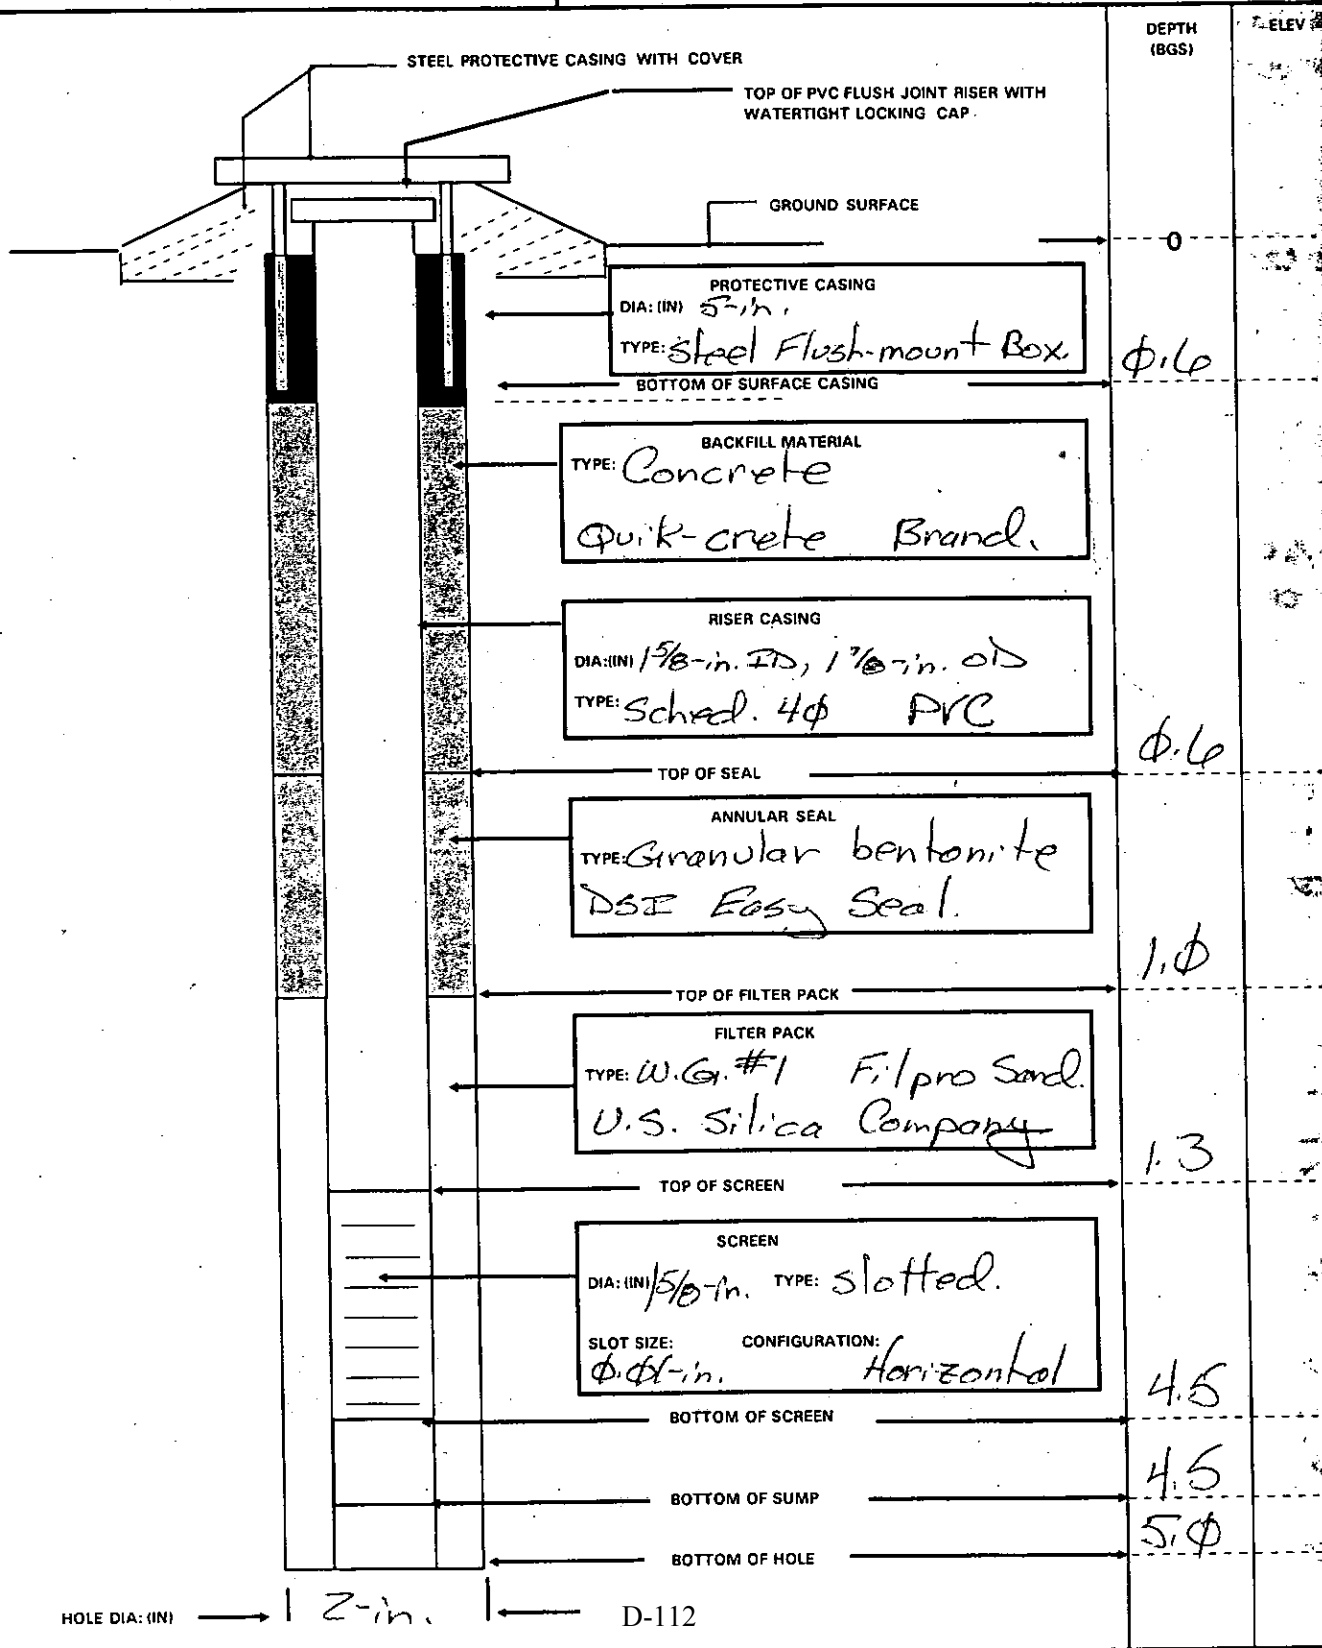 DEPTH
(BGS)
ELEV
STEEL PROTECTIVE CASING WITH COVER
TOP OF PVC FLUSH JOINT RISER WITH
WATERTIGHT LOCKING CAP
GROUND SURFACE
0
PROTECTIVE CASING
DIA: (IN) 5-in.
TYPE: Steel Flush-mount Box.
0.6
BOTTOM OF SURFACE CASING
BACKFILL MATERIAL
TYPE: Concrete
Quik-crete Brand.
RISER CASING
DIA:(IN) 1 5/8-in. ID, 1 7/8-in. OD
TYPE: Sched. 40 PVC
0.6
TOP OF SEAL
ANNULAR SEAL
TYPE: Granular bentonite
DSI Easy Seal.
1.0
TOP OF FILTER PACK
FILTER PACK
TYPE: W.G. #1 Filpro Sand.
U.S. Silica Company
1.3
TOP OF SCREEN
SCREEN
DIA: (IN) 1 5/8-in. TYPE: Slotted.
SLOT SIZE: CONFIGURATION:
0.01-in. Horizontal
4.5
BOTTOM OF SCREEN
4.5
BOTTOM OF SUMP
5.0
BOTTOM OF HOLE
HOLE DIA: (IN) 2-in.
D-112